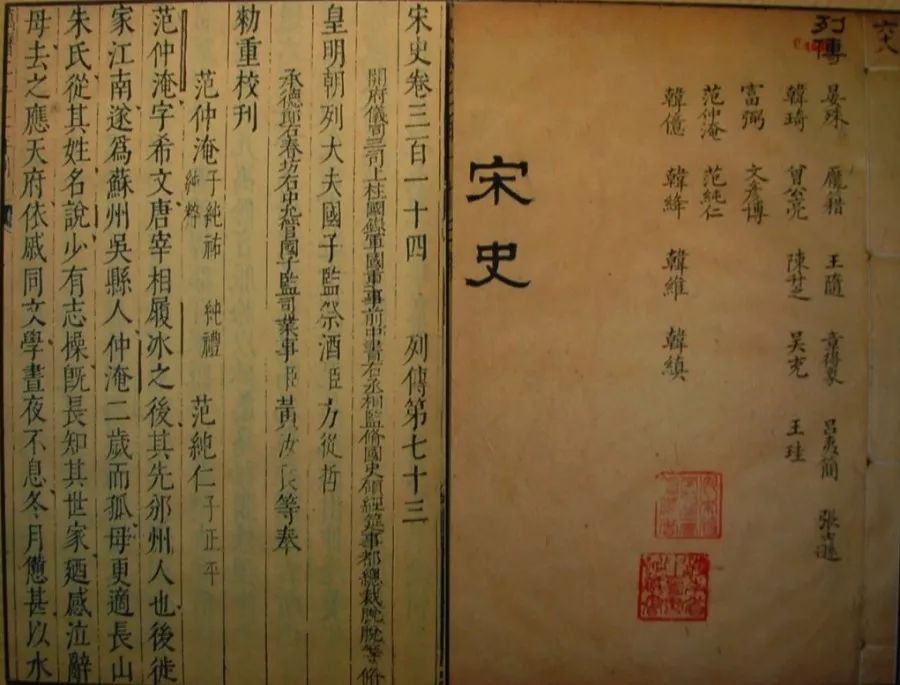 六八
列傳
晏殊 龐籍 王隨 章得象 呂夷簡 張士遜
韓琦 曾公亮 陳升之 吳充 王珪
富弼 文彥博
范仲淹 范純仁
韓億 韓絳 韓維 韓縝
宋史
宋史卷三百一十四 列傳第七十三
開府儀同三司上柱國錄軍國重事前中書右丞相監脩國史領經筵事都總裁脫脫等脩
皇明朝列大夫國子監祭酒臣方從哲
承德郎右春坊右中允管國子監司業事臣黃汝良等奉
勑重校刊
范仲淹 子純祐 純禮 純粹 范純仁 子正平
范仲淹字希文唐宰相履冰之後其先邠州人也後徙
家江南遂爲蘇州吳縣人仲淹二歲而孤母更適長山
朱氏從其姓名說少有志操旣長知其世家廼感泣辭
母去之應天府依戚同文學晝夜不息冬月憊甚以水